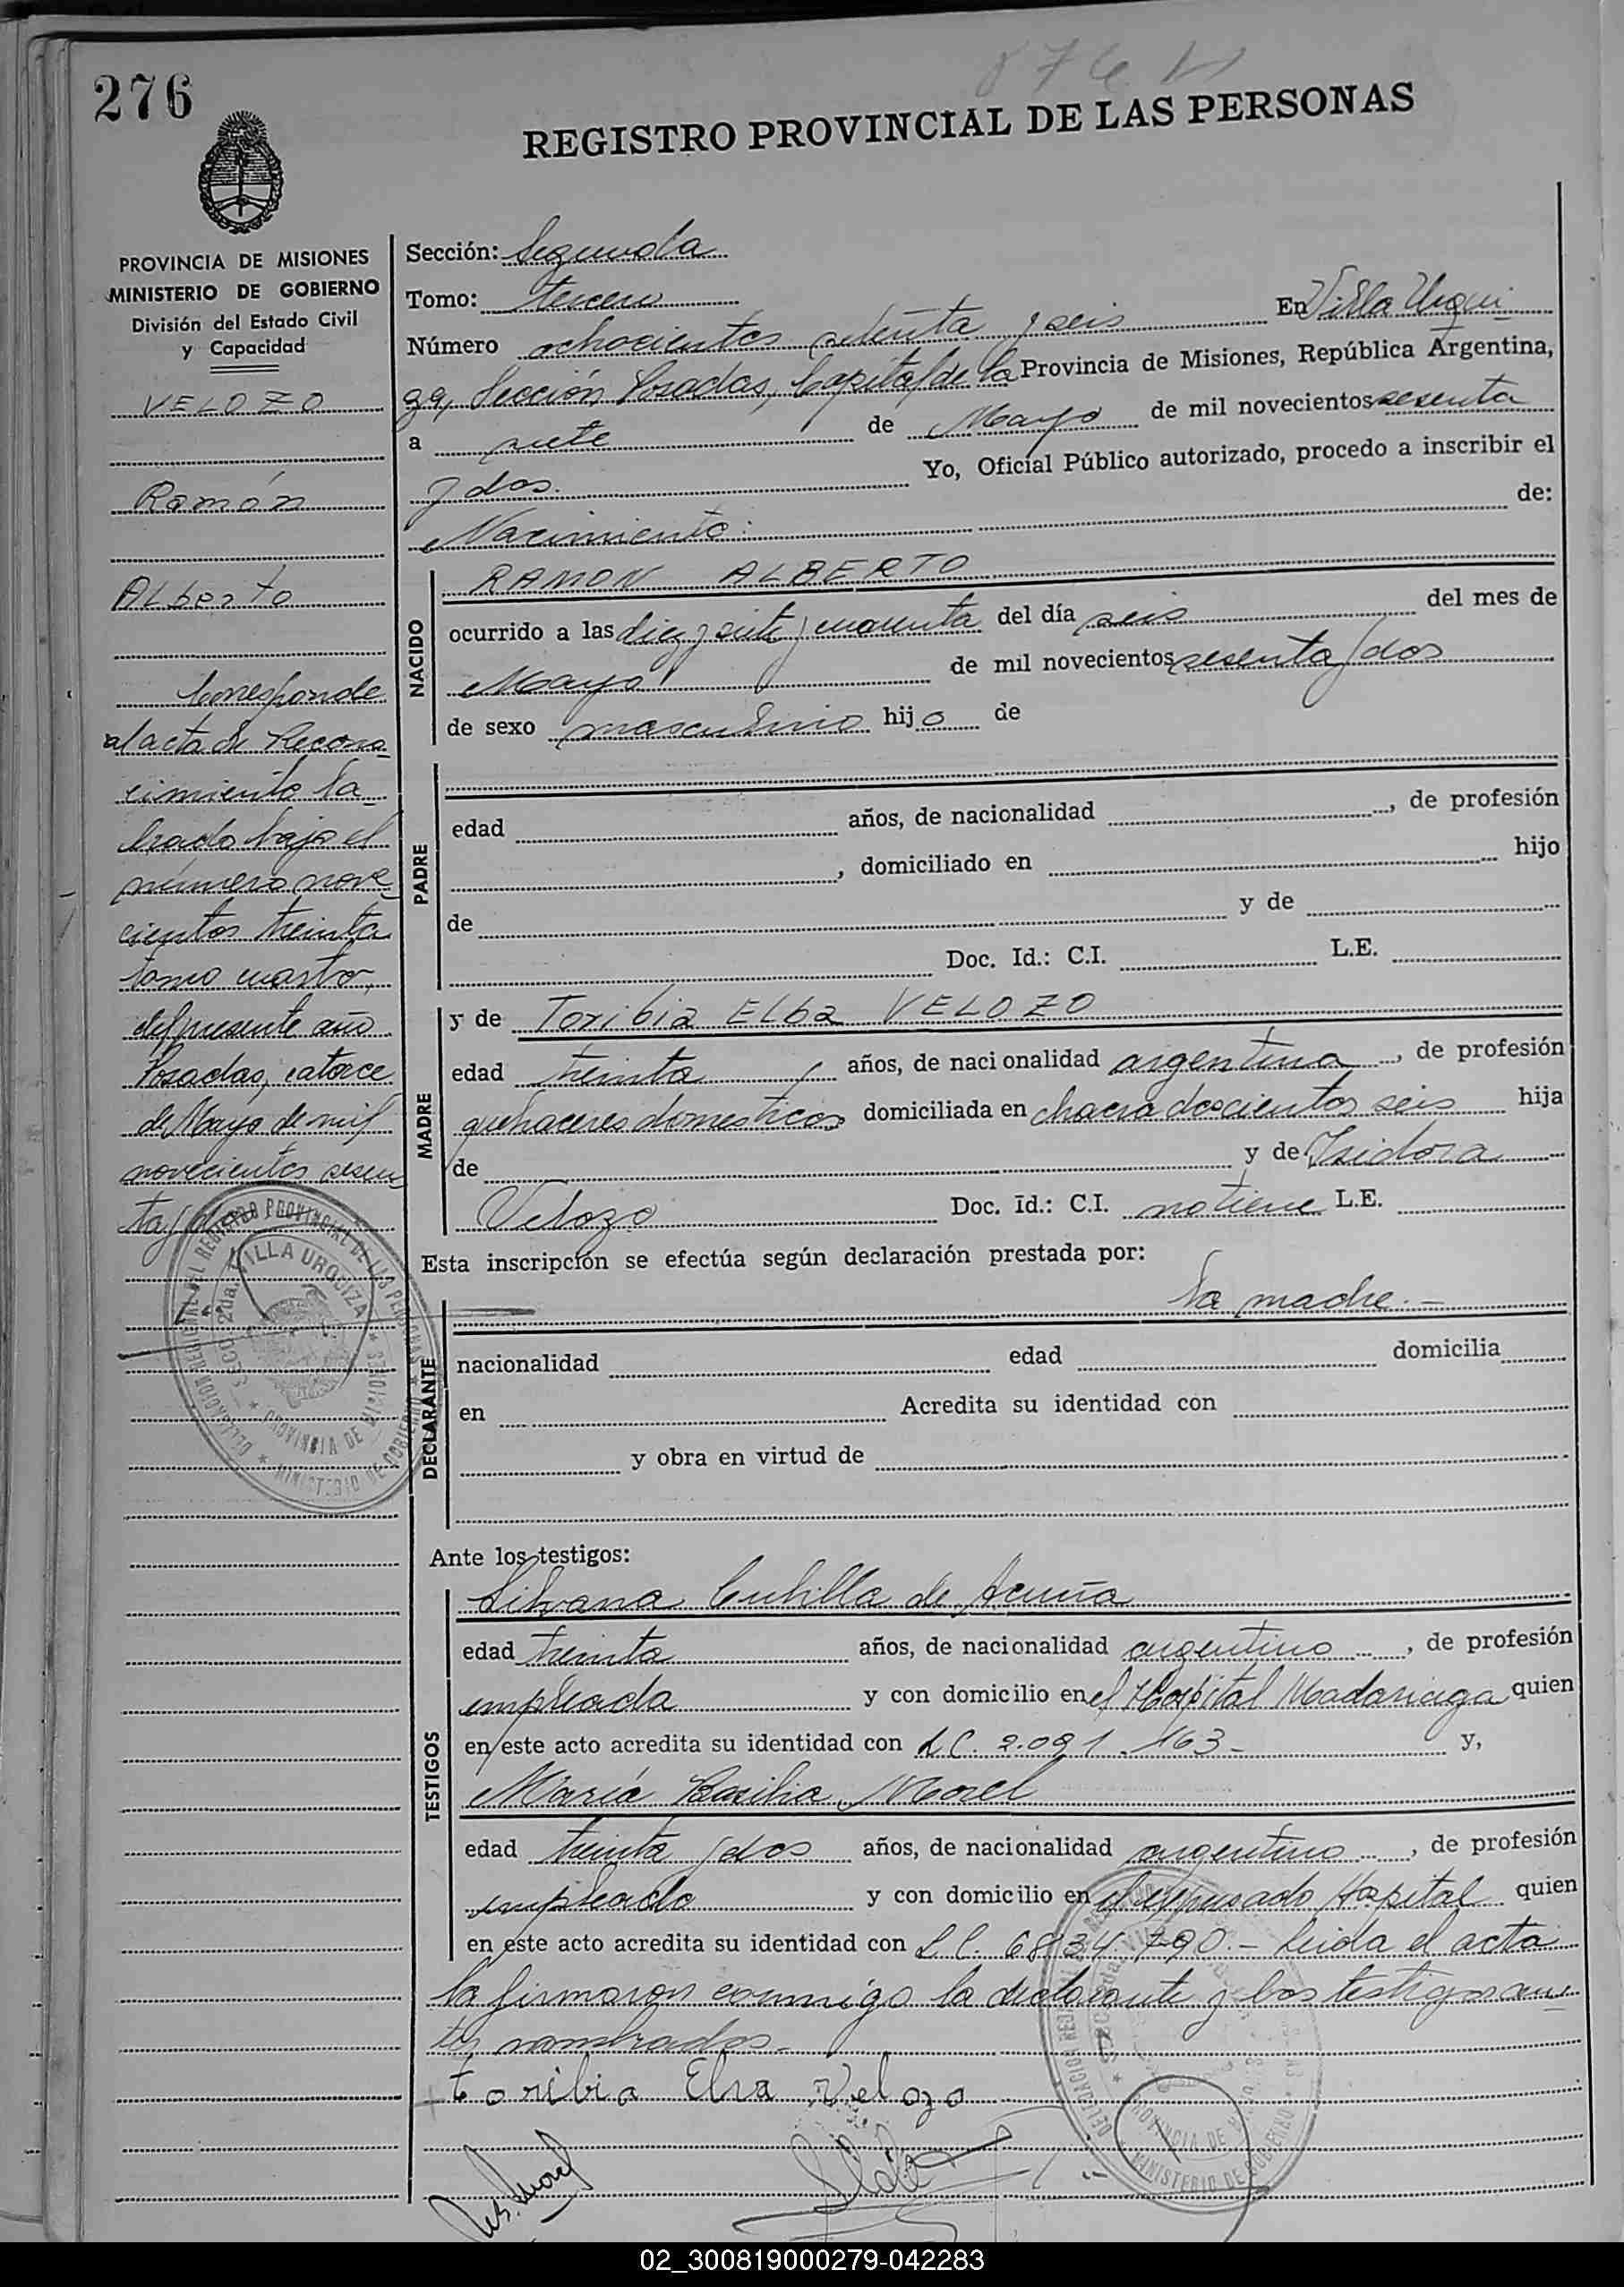 276
876 N
REGISTRO PROVINCIAL DE LAS PERSONAS
PROVINCIA DE MISIONES
MINISTERIO DE GOBIERNO
División del Estado Civil
y Capacidad
VELOZO
Ramón
Alberto
Corresponde
al acta de Recono-
cimiento la-
brado bajo el
número nove-
cientos treinta
tomo cuatro,
del presente año
Posadas, catorce
de Mayo de mil
novecientos sesen
ta y dos
Sección: Segunda
Tomo: tercero
Número ochocientos setenta y seis En Villa Urqui-
za, Sección Posadas, Capital de la Provincia de Misiones, República Argentina,
a siete de Mayo de mil novecientos sesenta
y dos. Yo, Oficial Público autorizado, procedo a inscribir el
Nacimiento: de:
NACIDO
RAMON ALBERTO
ocurrido a las diez y siete y cuarenta del día seis del mes de
Mayo de mil novecientos sesenta y dos
de sexo masculino hijo de
PADRE
edad años, de nacionalidad , de profesión
, domiciliado en hijo
de y de
Doc. Id.: C.I. L.E.
MADRE
y de Toribia Elba VELOZO
edad treinta años, de nacionalidad argentina, de profesión
quehaceres domesticos domiciliada en chacra doscientos seis hija
de y de Isidora
Velozo Doc. Id.: C.I. no tiene L.E.
Esta inscripción se efectúa según declaración prestada por:
DECLARANTE
la madre.-
nacionalidad edad domicilia
en Acredita su identidad con
y obra en virtud de
Ante los testigos:
TESTIGOS
Silvana Cubilla de Acuña
edad treinta años, de nacionalidad argentino, de profesión
empleada y con domicilio en el Hospital Madariaga quien
en este acto acredita su identidad con L.C. 2.091.163- y,
María Basilia Morel
edad treinta y dos años, de nacionalidad argentino, de profesión
empleado y con domicilio en el expresado Hospital quien
en este acto acredita su identidad con L.C. 6834.790.- Leida el acta
la firmaron conmigo la declarante y los testigos an-
tes nombrados.-
toribia Elva Velozo
DELEGACION REGIONAL REGISTRO PROVINCIAL DE LAS PERSONAS
SECC. 2da. VILLA URQUIZA
PROVINCIA DE MISIONES
MINISTERIO DE GOBIERNO
02_300819000279-042283